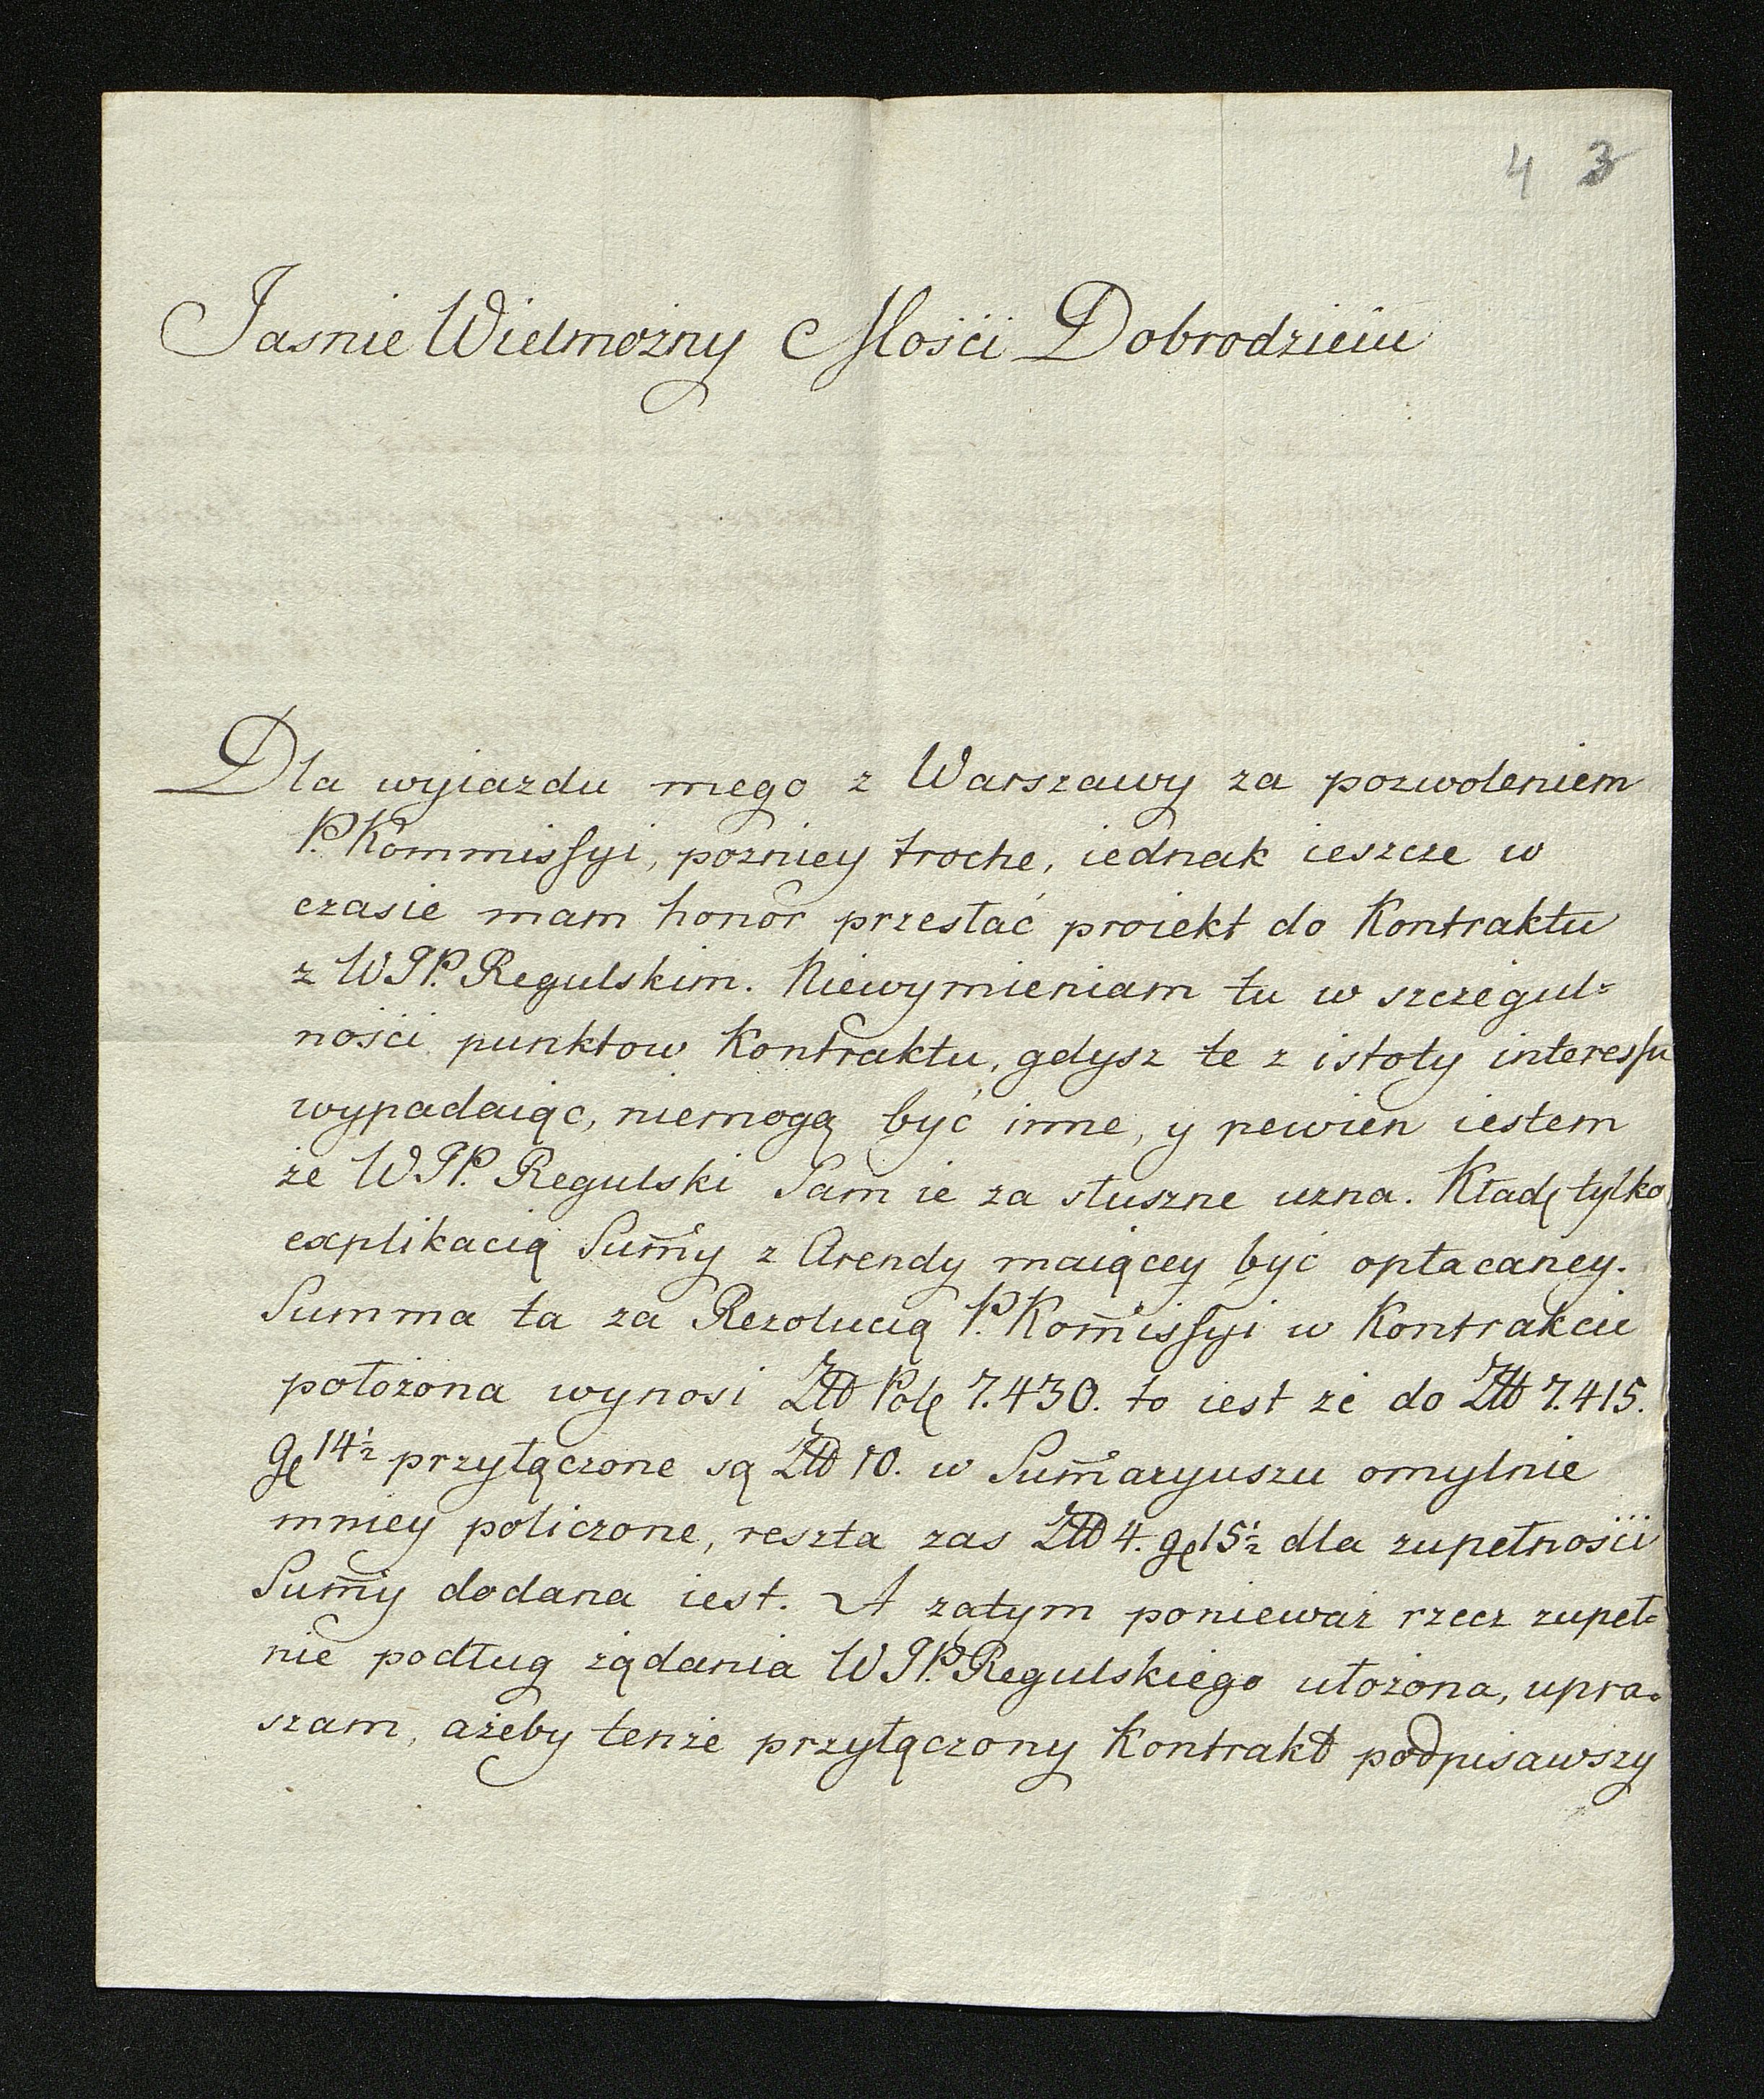 4 3
Jasnie Wielmożny Mości Dobrodzieiu
Dla wyiazdu mego z Warszawy za pozwoleniem
P. Kommissyi, pozniey troche, iednak ieszcze w
czasie mam honor przesłać proiekt do Kontraktu
z WJP. Regulskim. Niewymieniam tu w szczegul-
ności punktow Kontraktu, gdysz te z istoty interessu
wypadaiąc, niemogą być inne, y pewien iestem
że WJP. Regulski Sam ie za słuszne uzna. Kładę tylko
explikacią Sum̄y z Arendy maiącey być opłacaney.
Summa ta za Rezolucią P. Kom̄issyi w Kontrakcie
położona wynosi Złł Pol 7.430. to iest że do Złł 7.415.
g 14½ przyłączone są Złł 10. w Sum̄aryuszu omylnie
mniey policzone, reszta zas Złł 4. g 15½ dla zupełności
Sum̄y dodana iest. A zatym ponieważ rzecz zupeł-
nie podług żądania WJP. Regulskiego ułożona, upra-
szam, ażeby tenże przyłączony Kontrakt podpisawszy